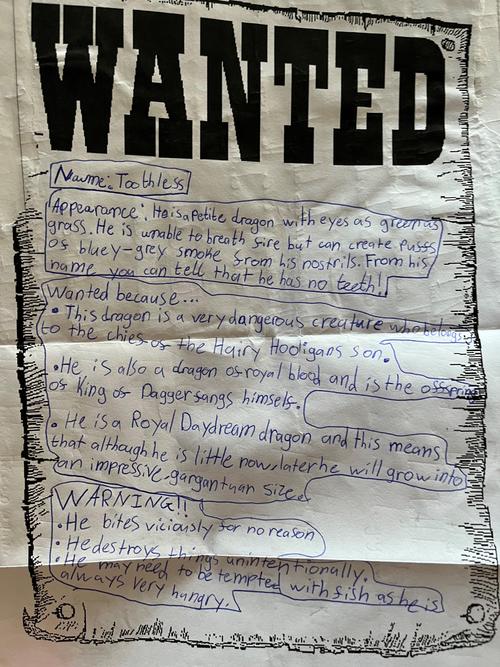 WANTED
Name: Toothless
Appearance: He is a petite dragon with eyes as green as
grass. He is unable to breath fire but can create puffs
of bluey-grey smoke from his nostrils. From his
name you can tell that he has no teeth!
Wanted because...
• This dragon is a very dangerous creature who belongs
to the chief of the Hairy Hooligans son.
• He is also a dragon of royal blood and is the offspring
of King of Daggerfangs himself.
• He is a Royal Daydream dragon and this means
that although he is little now, later he will grow into
an impressive, gargantuan size.
WARNING!!
• He bites viciously for no reason
• He destroys things unintentionally.
• He may need to be tempted with fish as he is
always very hungry.